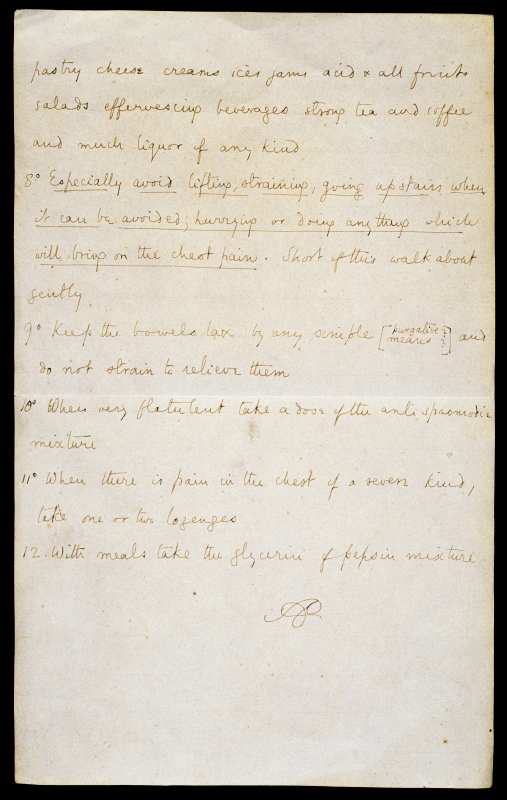 pastry cheese creams ices jams acid & all fruits
salads effervescing beverages strong tea and coffee
and much liquor of any kind
8° Especially avoid lifting, straining, going upstairs when
it can be avoided, hurrying or doing anything which
will bring on the chest pain. Short of this walk about
gently
9° Keep the bowels lax by any simple [purgative means] and
do not strain to relieve them
10° When very flatulent take a dose of the anti spasmodic
mixture
11° When there is pain in the chest of a severe kind,
take one or two lozenges
12. With meals take the glycerin of pepsin mixture